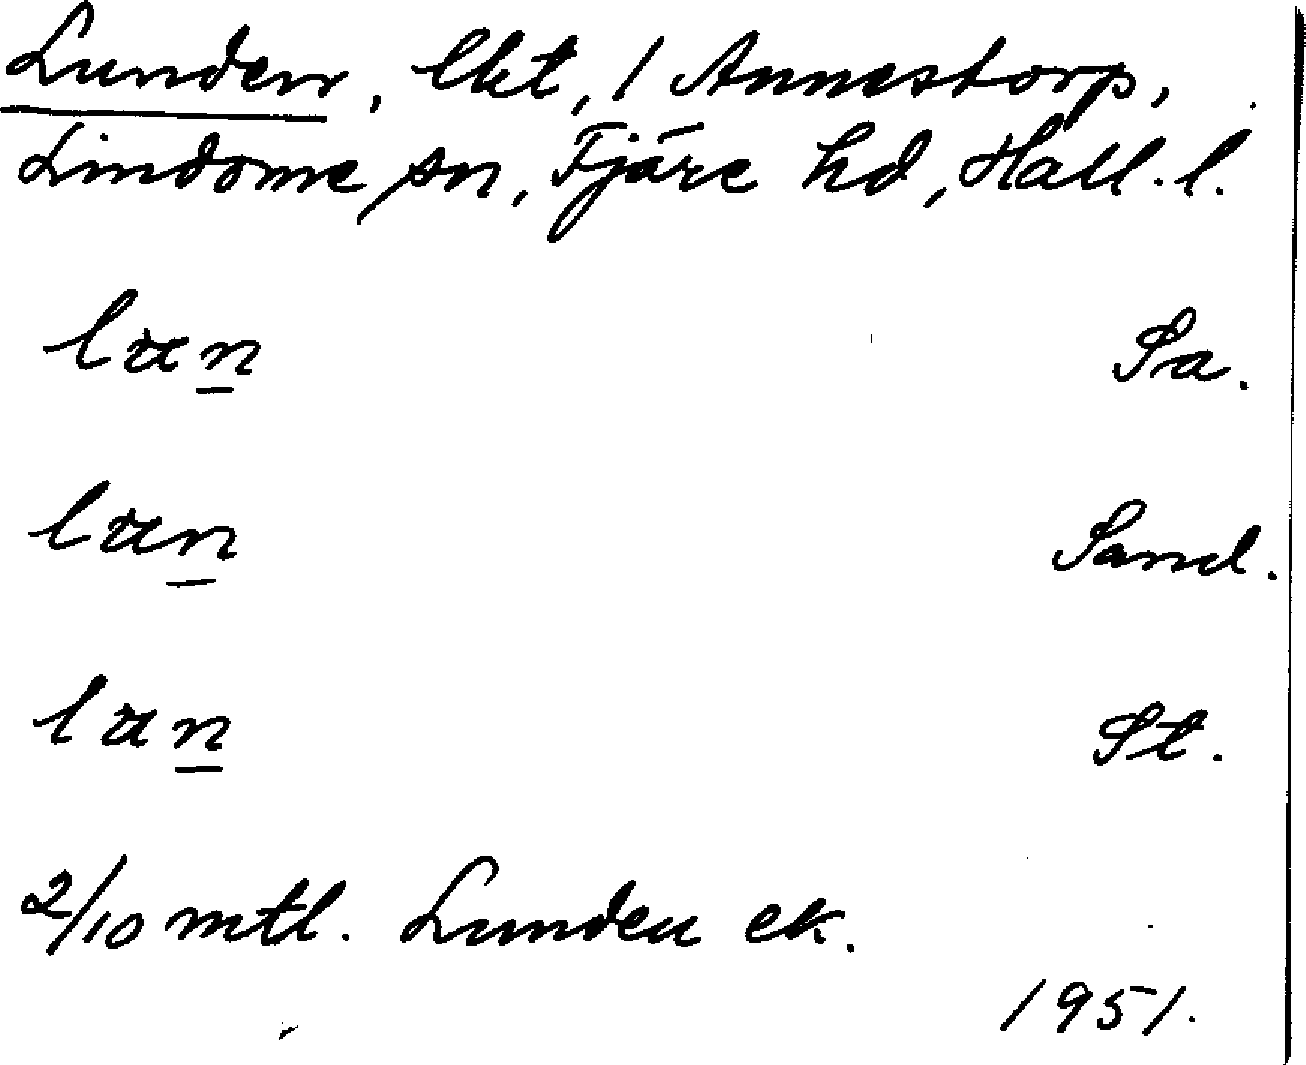 Lunden, lht, 1 Annestorp,
Lindome sn, Fjäre hd, Hall. l.
lun Sa.
lun Sand.
lun St.
2/10 mtl. Lunden ek.
1951.